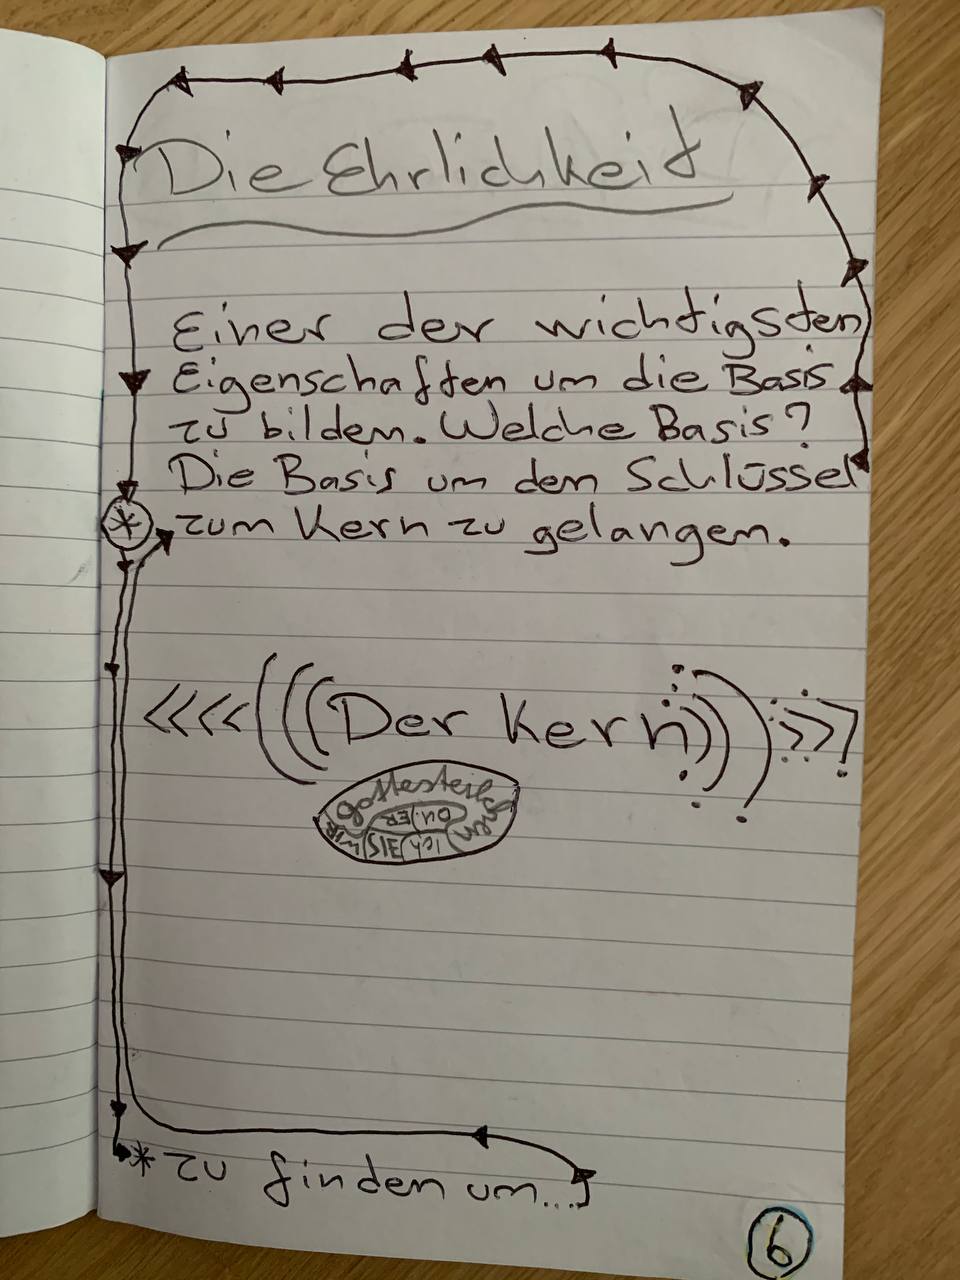 Die Ehrlichkeit
Einer der wichtigsten
Eigenschaften um die Basis
zu bilden. Welche Basis?
Die Basis um den Schlüssel
* zum Kern zu gelangen.
<<<<(((Der Kern)))>>>
Gottesteilchen
DU. ER
WIR SIE Ich
* zu finden um...
6